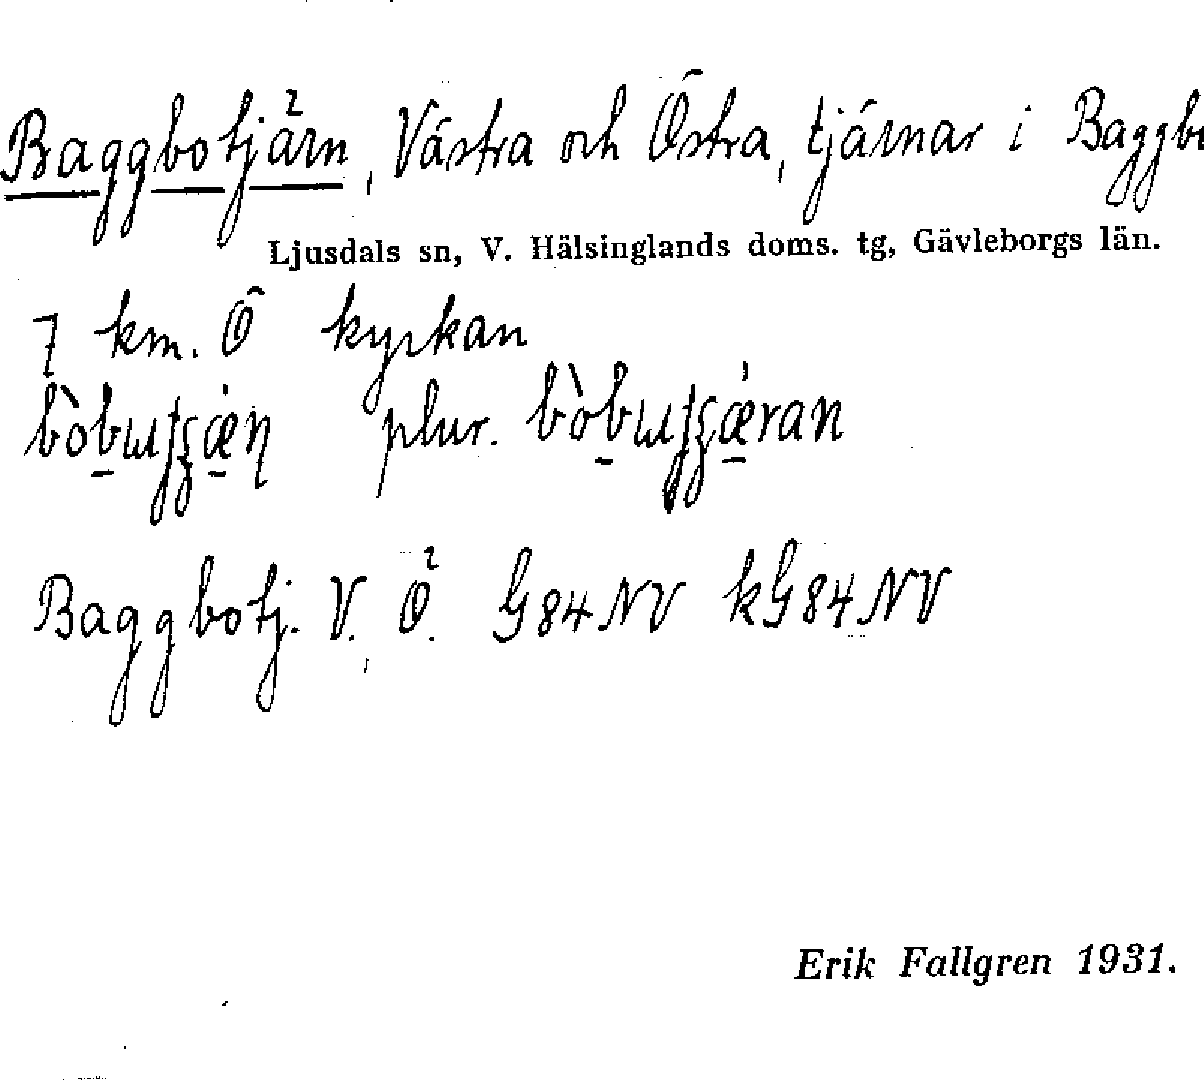 Baggbotjärn, Västra och Östra, tjärnar i Baggbo
Ljusdals sn, V. Hälsinglands doms. tg, Gävleborgs län.
7 km. Ö kyrkan
plur.
Baggbotj. V. Ö. G84NV kG84NV
Erik Fallgren 1931.